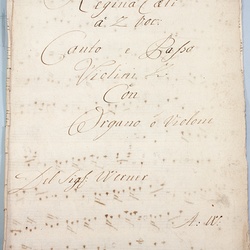 Regina Cæli
à 2 Voc:
Canto e Basso
Violini
Con
Organo e Violone
Del Sigr Werner
A: W: